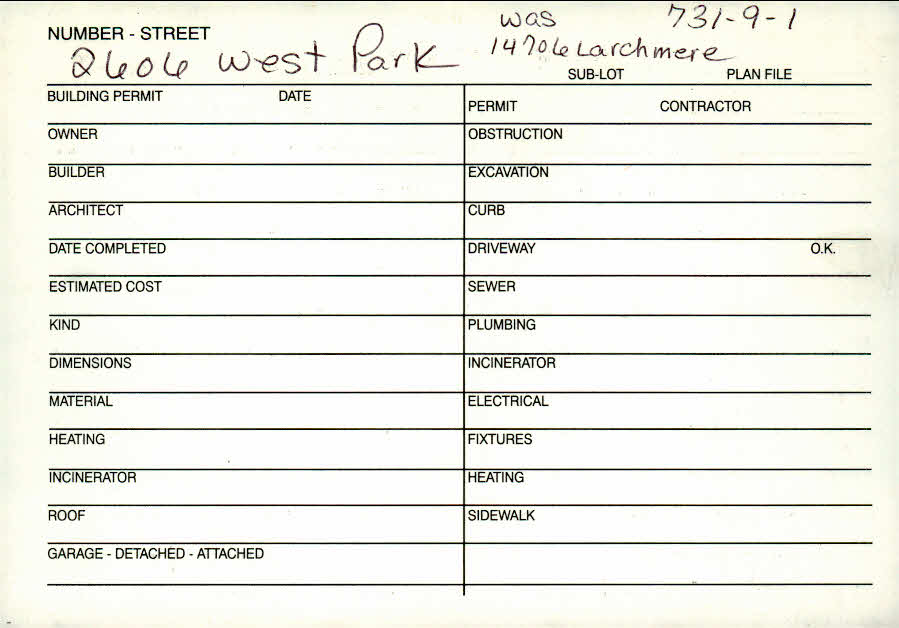 was 731-9-1
NUMBER - STREET
2606 West Park 14706 Larchmere
SUB-LOT PLAN FILE
BUILDING PERMIT DATE
PERMIT CONTRACTOR
OWNER
OBSTRUCTION
BUILDER
EXCAVATION
ARCHITECT
CURB
DATE COMPLETED
DRIVEWAY O.K.
ESTIMATED COST
SEWER
KIND
PLUMBING
DIMENSIONS
INCINERATOR
MATERIAL
ELECTRICAL
HEATING
FIXTURES
INCINERATOR
HEATING
ROOF
SIDEWALK
GARAGE - DETACHED - ATTACHED